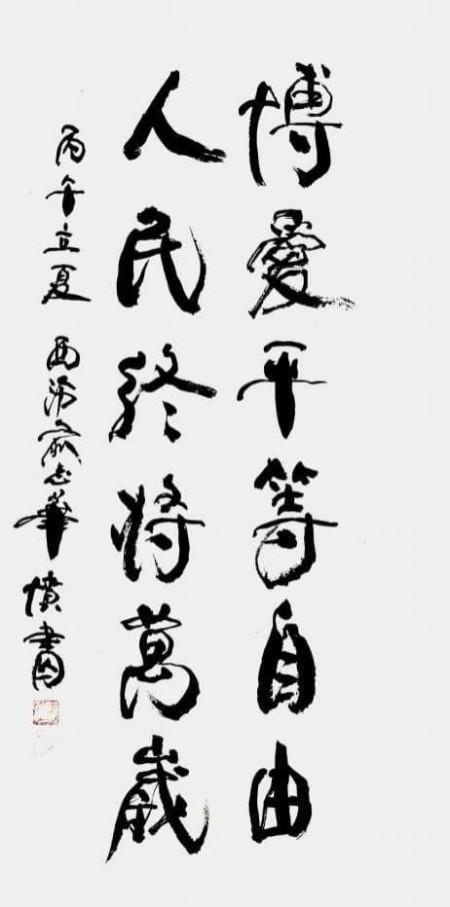 博愛平等自由
人民終將萬歲
丙午立夏 西泠俞志華憤書